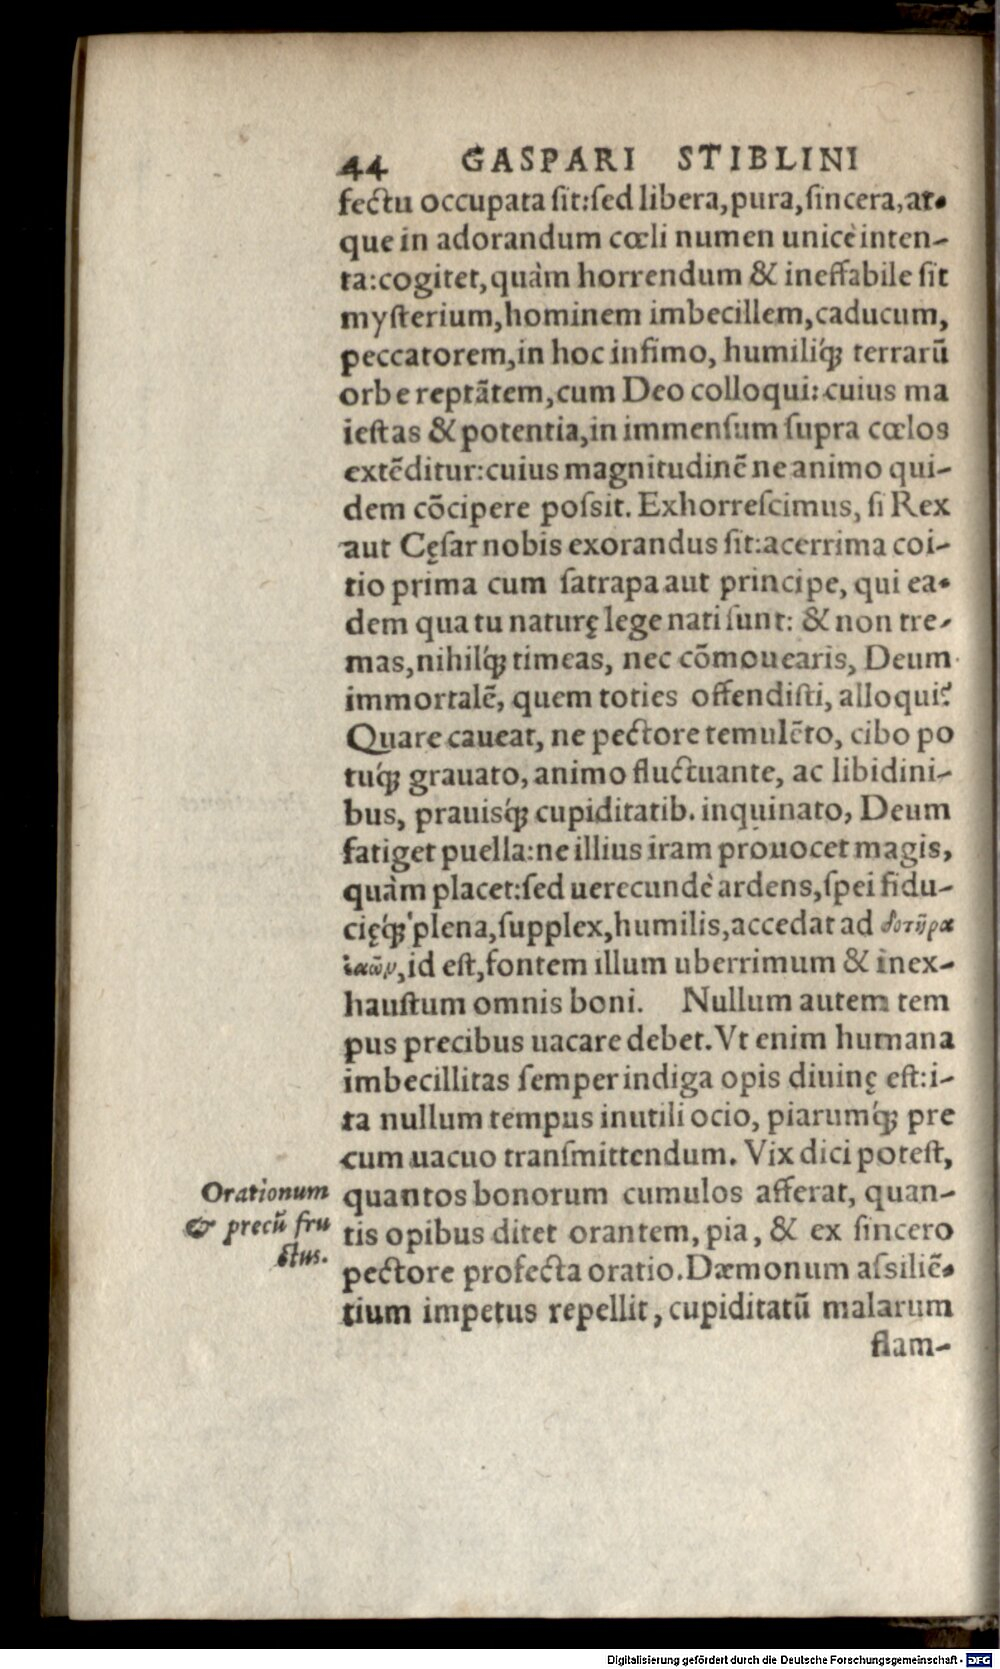 44 GASPARI STIBLINI
fectu occupata ſit:ſed libera, pura, ſincera, at-
que in adorandum cœli numen unicè inten-
ta:cogitet, quàm horrendum & ineffabile ſit
myſterium, hominem imbecillem, caducum,
peccatorem, in hoc infimo, humiliq́ꝫ terrarū
orbe reptātem, cum Deo colloqui: cuius ma
ieſtas & potentia, in immenſum ſupra cœlos
extēditur: cuius magnitudinē ne animo qui-
dem cōcipere poſsit. Exhorreſcimus, ſi Rex
aut Cęſar nobis exorandus ſit: acerrima coi-
tio prima cum ſatrapa aut principe, qui ea-
dem qua tu naturę lege nati ſunt: & non tre-
mas, nihilq́ꝫ timeas, nec cōmouearis, Deum
immortalē, quem toties offendiſti, alloqui?
Quare caueat, ne pectore temulēto, cibo po
tuq́ꝫ grauato, animo fluctuante, ac libidini-
bus, prauisq́ꝫ cupiditatib. inquinato, Deum
fatiget puella: ne illius iram prouocet magis,
quàm placet: ſed uerecundè ardens, ſpei fidu-
cięq́ꝫ plena, ſupplex, humilis, accedat ad δοτῆρα
ἑαῶν, id eſt, fontem illum uberrimum & inex-
hauſtum omnis boni. Nullum autem tem
pus precibus uacare debet. Vt enim humana
imbecillitas ſemper indiga opis diuinę eſt: i-
ta nullum tempus inutili ocio, piarumq́ꝫ pre
cum uacuo tranſmittendum. Vix dici poteſt,
quantos bonorum cumulos afferat, quan-
tis opibus ditet orantem, pia, & ex ſincero
pectore profecta oratio. Dæmonum aſsiliē-
tium impetus repellit, cupiditatū malarum
flam-
Orationum
& precū fru
ctus.
Digitalisierung gefördert durch die Deutsche Forschungsgemeinschaft - DFG